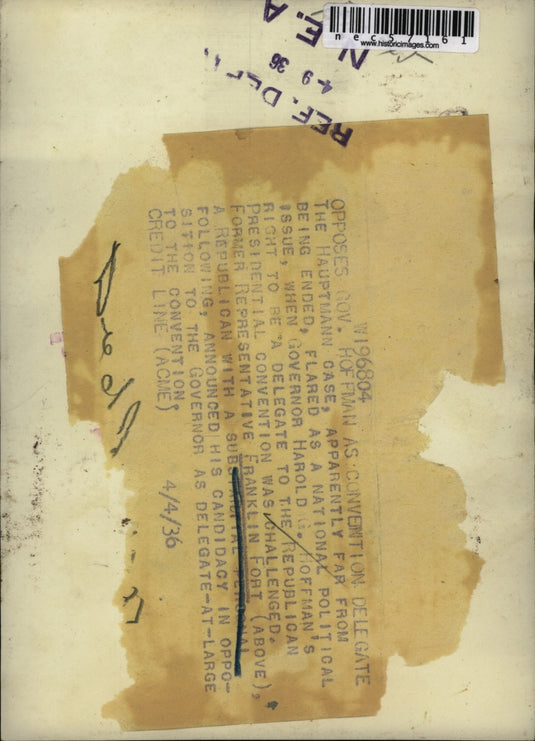 nec57161
www.historicimages.com
N.E.A
4 9 36
REF. DEPT.
W196804
OPPOSES GOV. HOFFMAN AS CONVENTION DELEGATE
THE HAUPTMANN CASE, APPARENTLY FAR FROM
BEING ENDED, FLARED AS A NATIONAL POLITICAL
ISSUE, WHEN GOVERNOR HAROLD G. HOFFMAN'S
RIGHT TO BE A DELEGATE TO THE REPUBLICAN
PRESIDENTIAL CONVENTION WAS CHALLENGED.
FORMER REPRESENTATIVE FRANKLIN FORT (ABOVE),
A REPUBLICAN WITH A SUBSTANTIAL PERSONAL
FOLLOWING, ANNOUNCED HIS CANDIDACY IN OPPO-
SITION TO THE GOVERNOR AS DELEGATE-AT-LARGE
TO THE CONVENTION.
CREDIT LINE (ACME) 4/4/36